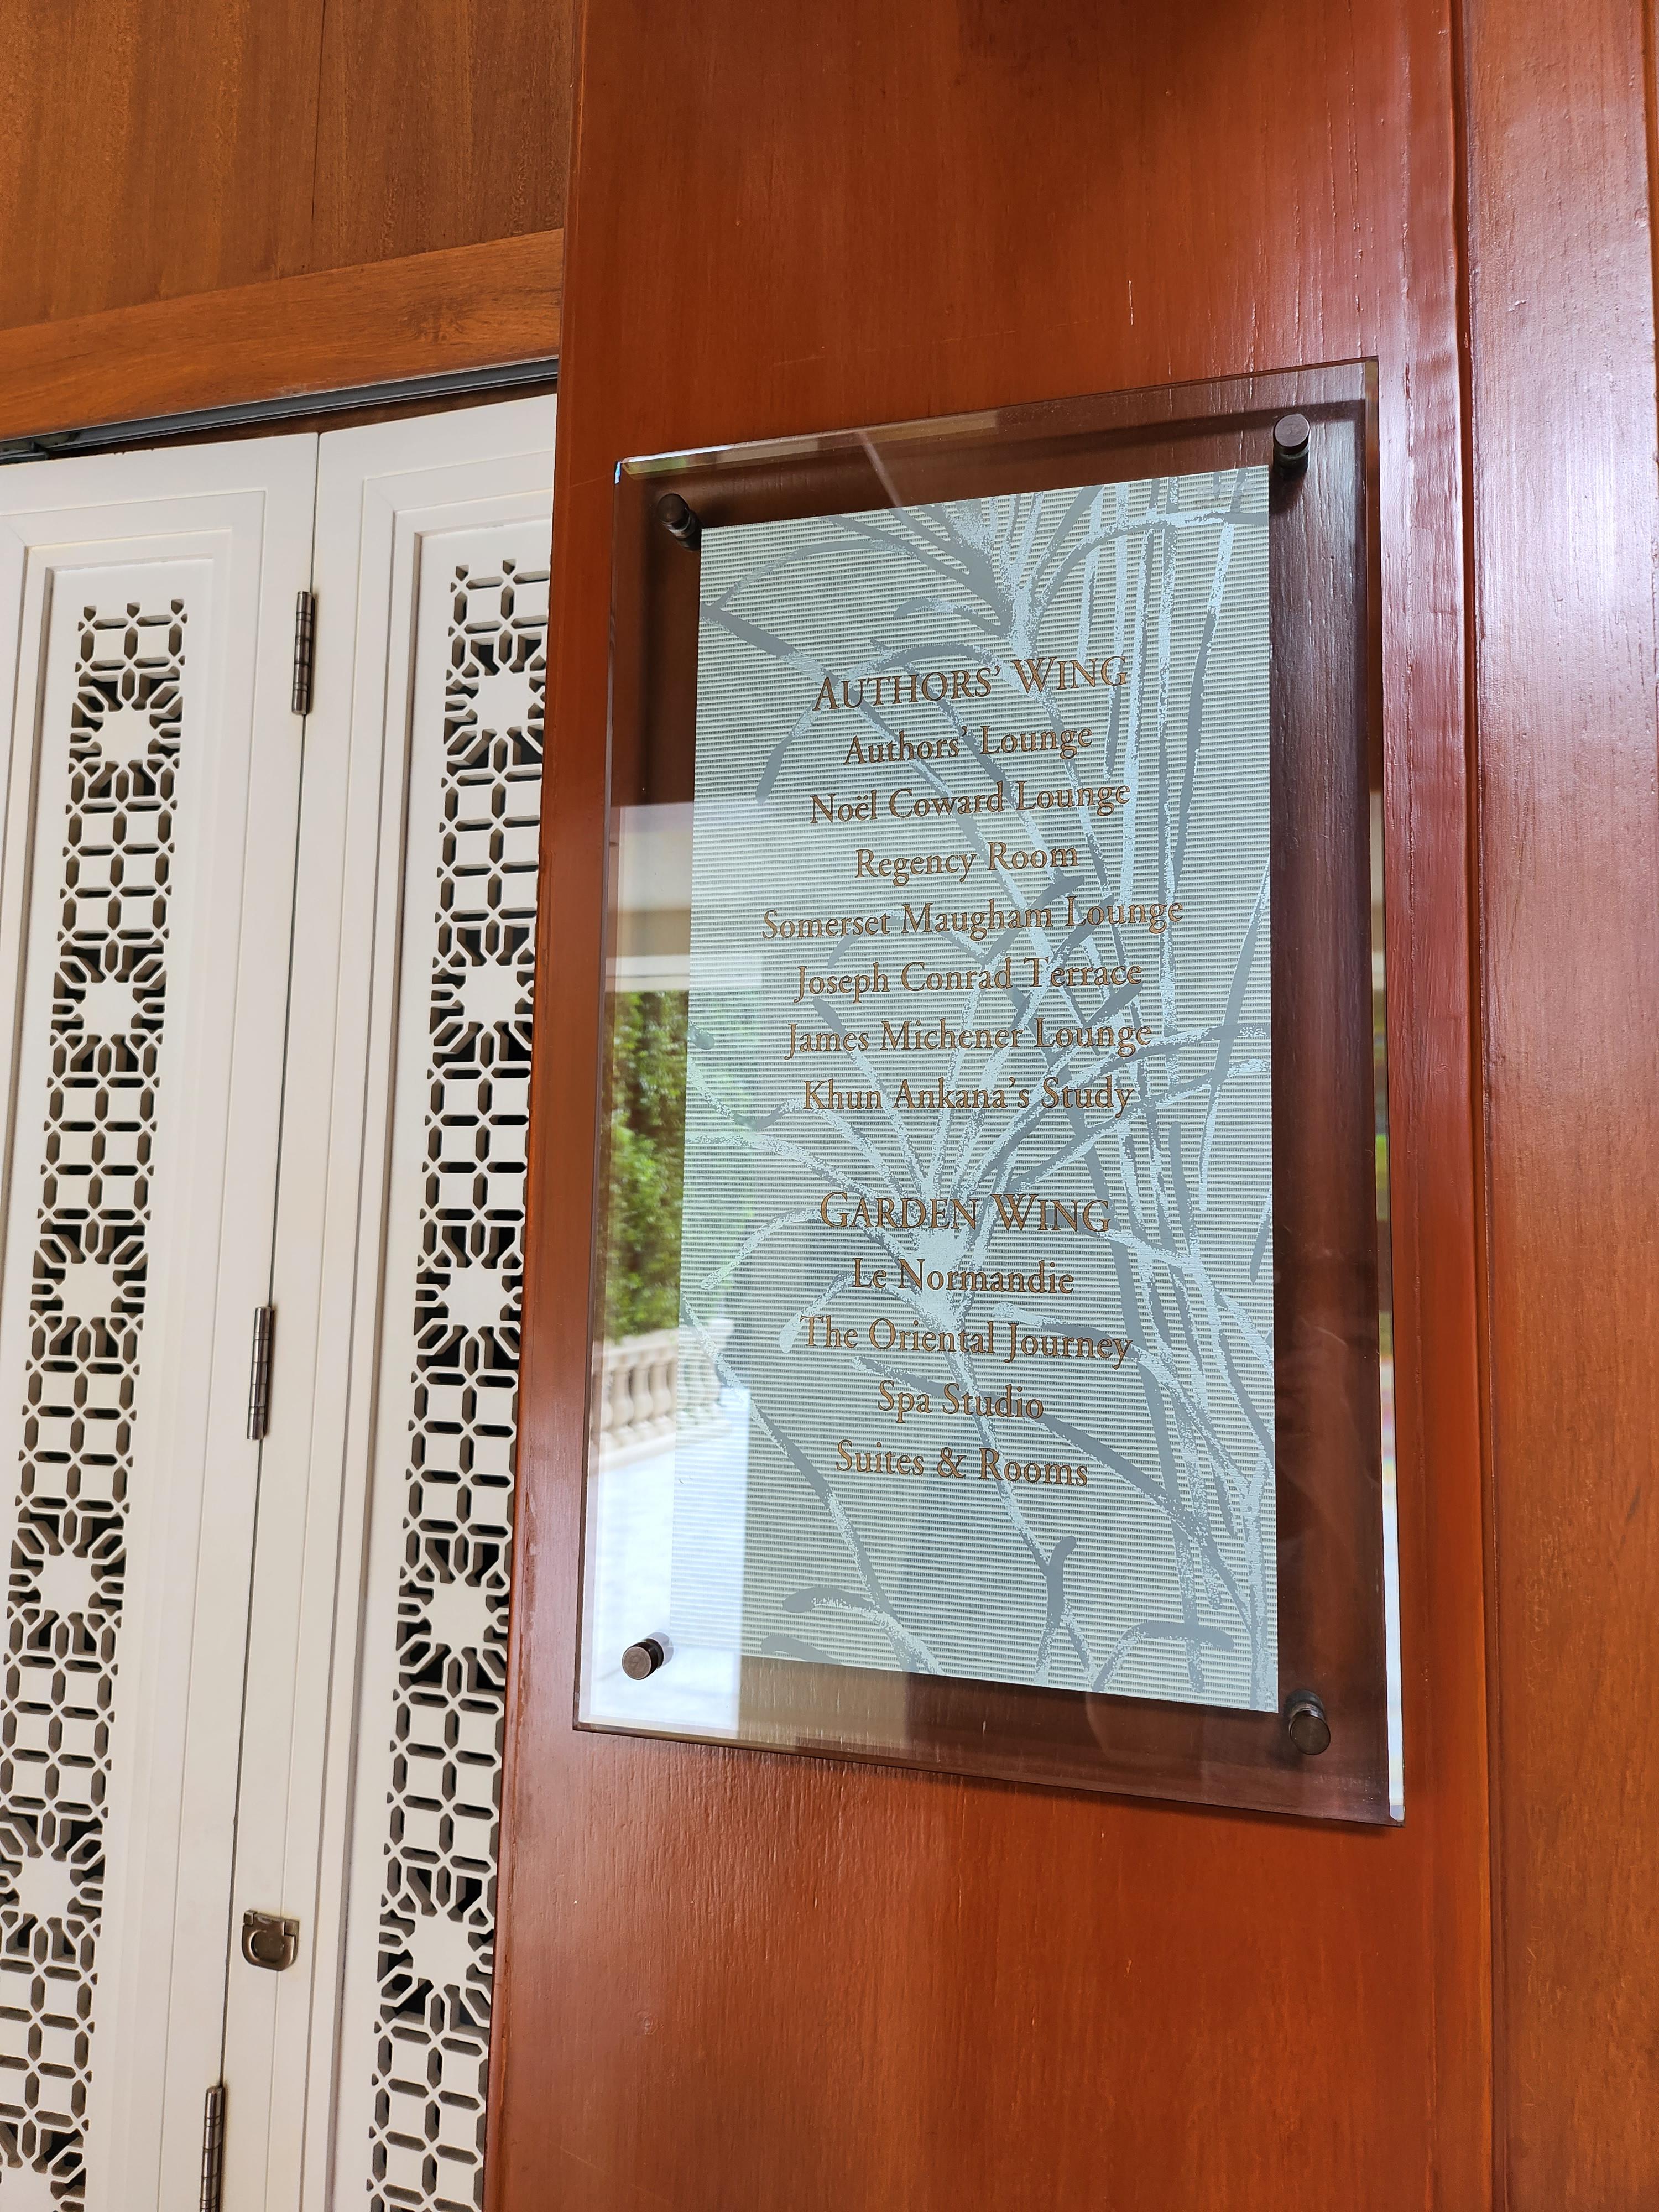 AUTHORS' WING
Authors' Lounge
Noël Coward Lounge
Regency Room
Somerset Maugham Lounge
Joseph Conrad Terrace
James Michener Lounge
Khun Ankana's Study
GARDEN WING
Le Normandie
The Oriental Journey
Spa Studio
Suites & Rooms